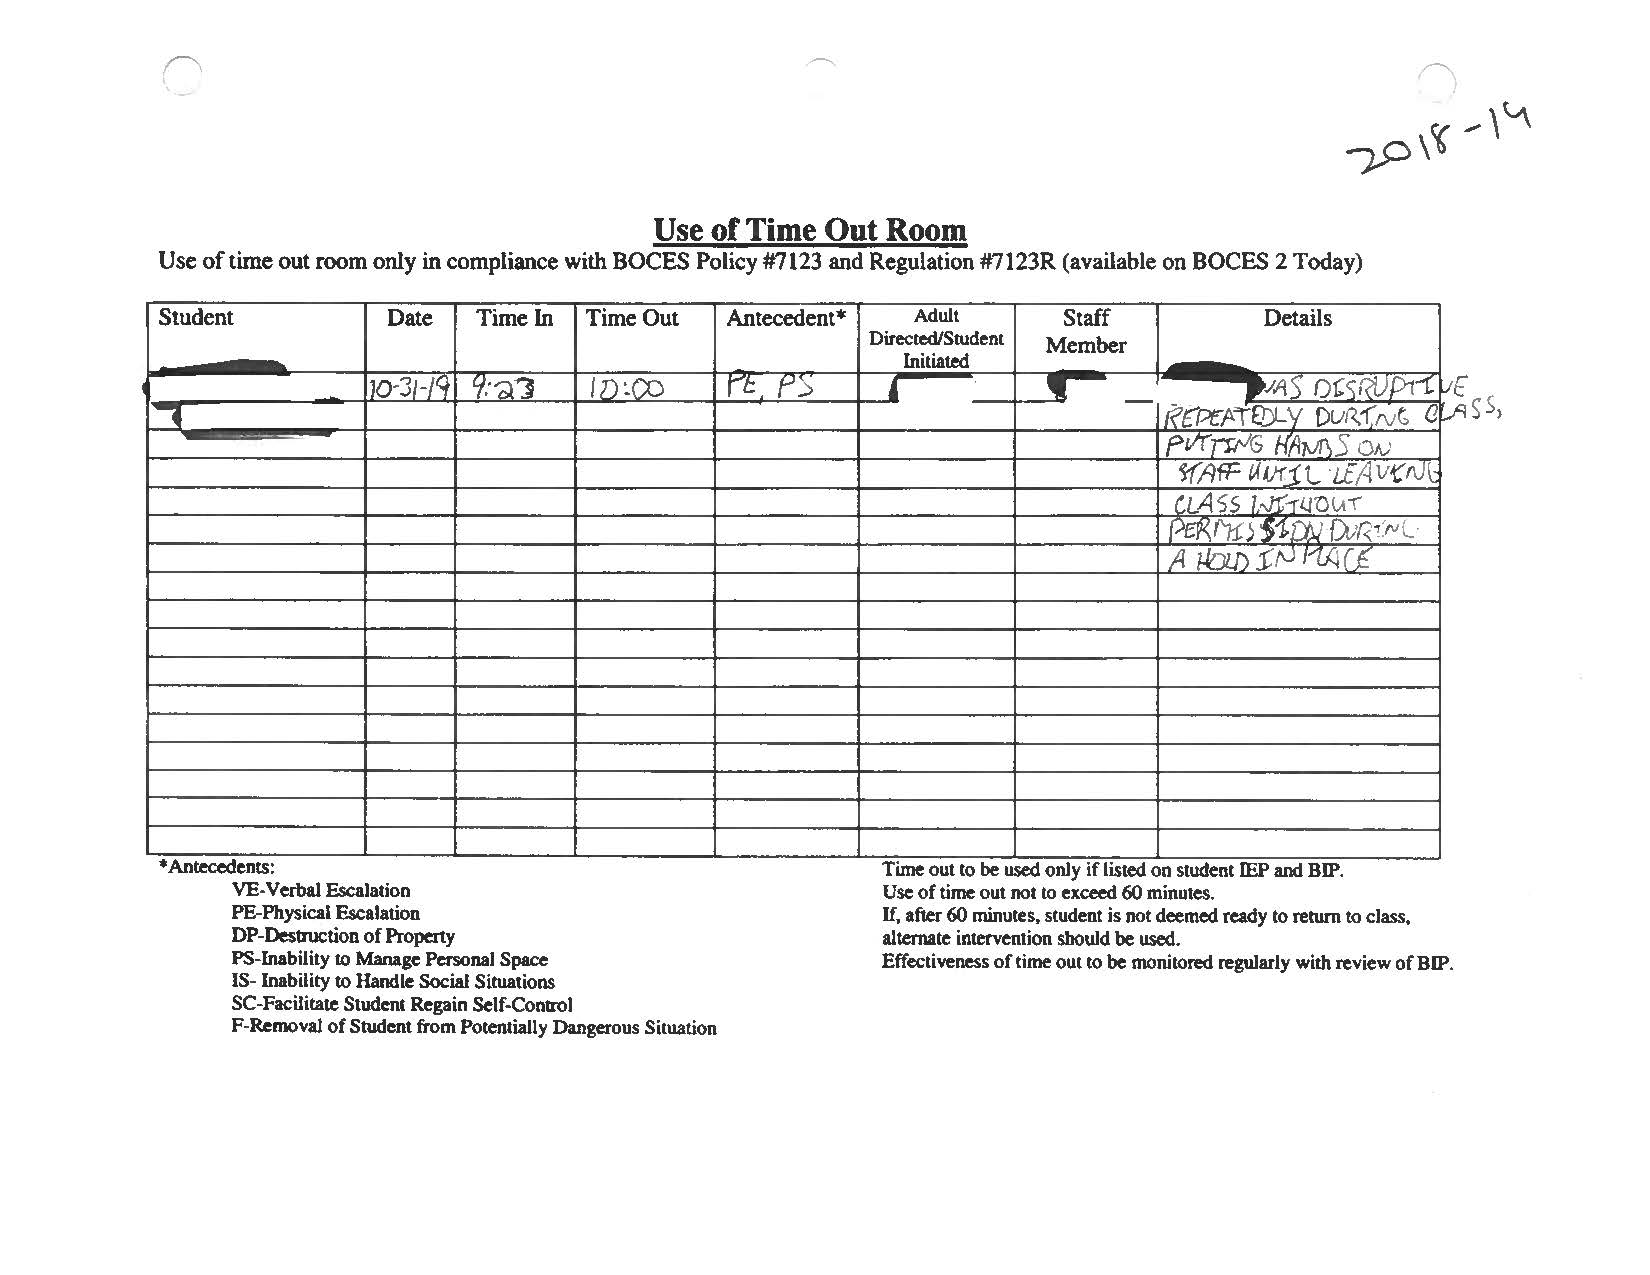 2018-19
Use of Time Out Room
Use of time out room only in compliance with BOCES Policy #7123 and Regulation #7123R (available on BOCES 2 Today)
Student Date Time In Time Out Antecedent* Adult Directed/Student Initiated Staff Member Details
10-31-19 9:23 10:00 PE, PS WAS DISRUPTIVE
REPEATEDLY DURING CLASS,
PUTTING HANDS ON
STAFF UNTIL LEAVING
CLASS WITHOUT
PERMISSION DURING
A HOLD IN PLACE
*Antecedents:
VE-Verbal Escalation
PE-Physical Escalation
DP-Destruction of Property
PS-Inability to Manage Personal Space
IS- Inability to Handle Social Situations
SC-Facilitate Student Regain Self-Control
F-Removal of Student from Potentially Dangerous Situation
Time out to be used only if listed on student IEP and BIP.
Use of time out not to exceed 60 minutes.
If, after 60 minutes, student is not deemed ready to return to class,
alternate intervention should be used.
Effectiveness of time out to be monitored regularly with review of BIP.